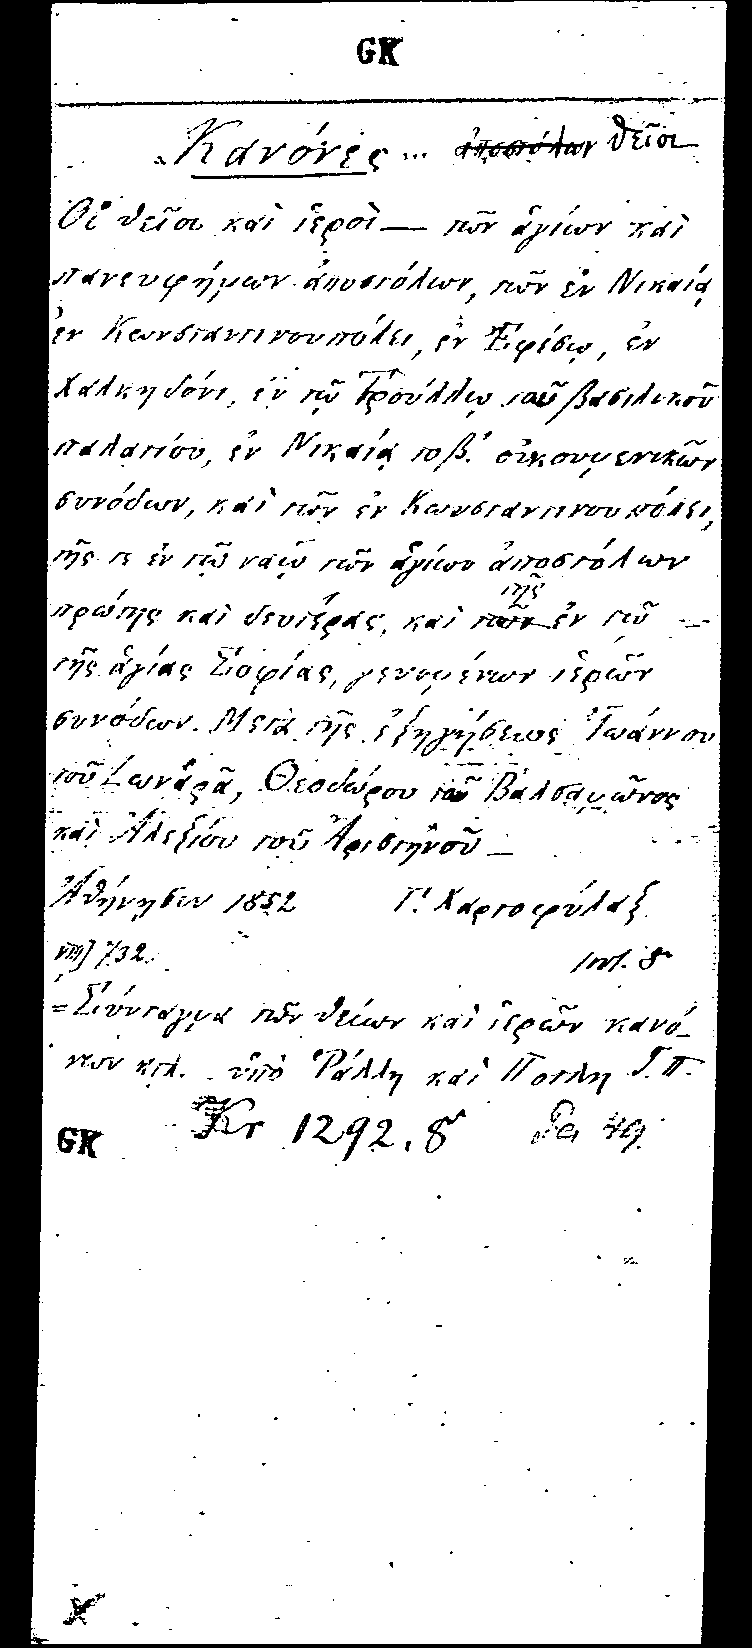 GK
„Κανόνες ... ἀποστόλων θεῖοι
Οἱ θεῖοι καὶ ἱεροὶ — τῶν ἁγίων καὶ
πανευφήμων ἀποστόλων, τῶν ἐν Νικαίᾳ
ἐν Κωνσταντινουπόλει, ἐν Ἐφέσῳ, ἐν
Χαλκηδόνι, ἐν τῷ Τρούλλῳ τοῦ βασιλικοῦ
παλατίου, ἐν Νικαίᾳ το β' οἰκουμενικῶν
συνόδων, καὶ τῶν ἐν Κωνσταντινουπόλει,
τῆς τε ἐν τῷ ναῷ τῶν ἁγίων ἀποστόλων
τῆς
πρώτης καὶ δευτέρας, καὶ τῶν ἐν τῷ —
τῆς ἁγίας Σοφίας, γενομένων ἱερῶν
συνόδων. Μετὰ τῆς ἐξηγήσεως Ἰωάννου
τοῦ Ζωναρᾶ, Θεοδώρου τοῦ Βαλσαμῶνος
καὶ Ἀλεξίου τοῦ Ἀριστηνοῦ —
Ἀθήνησιν 1852 Γ. Χαρτοφύλαξ
VIII] 732. 8°
= Σύνταγμα τῶν θείων καὶ ἱερῶν κανό-
νων κτλ. ὑπὸ Ῥάλλη καὶ Ποτλη Γ. Π.
Kr 1292. 8° 49.
GK
X